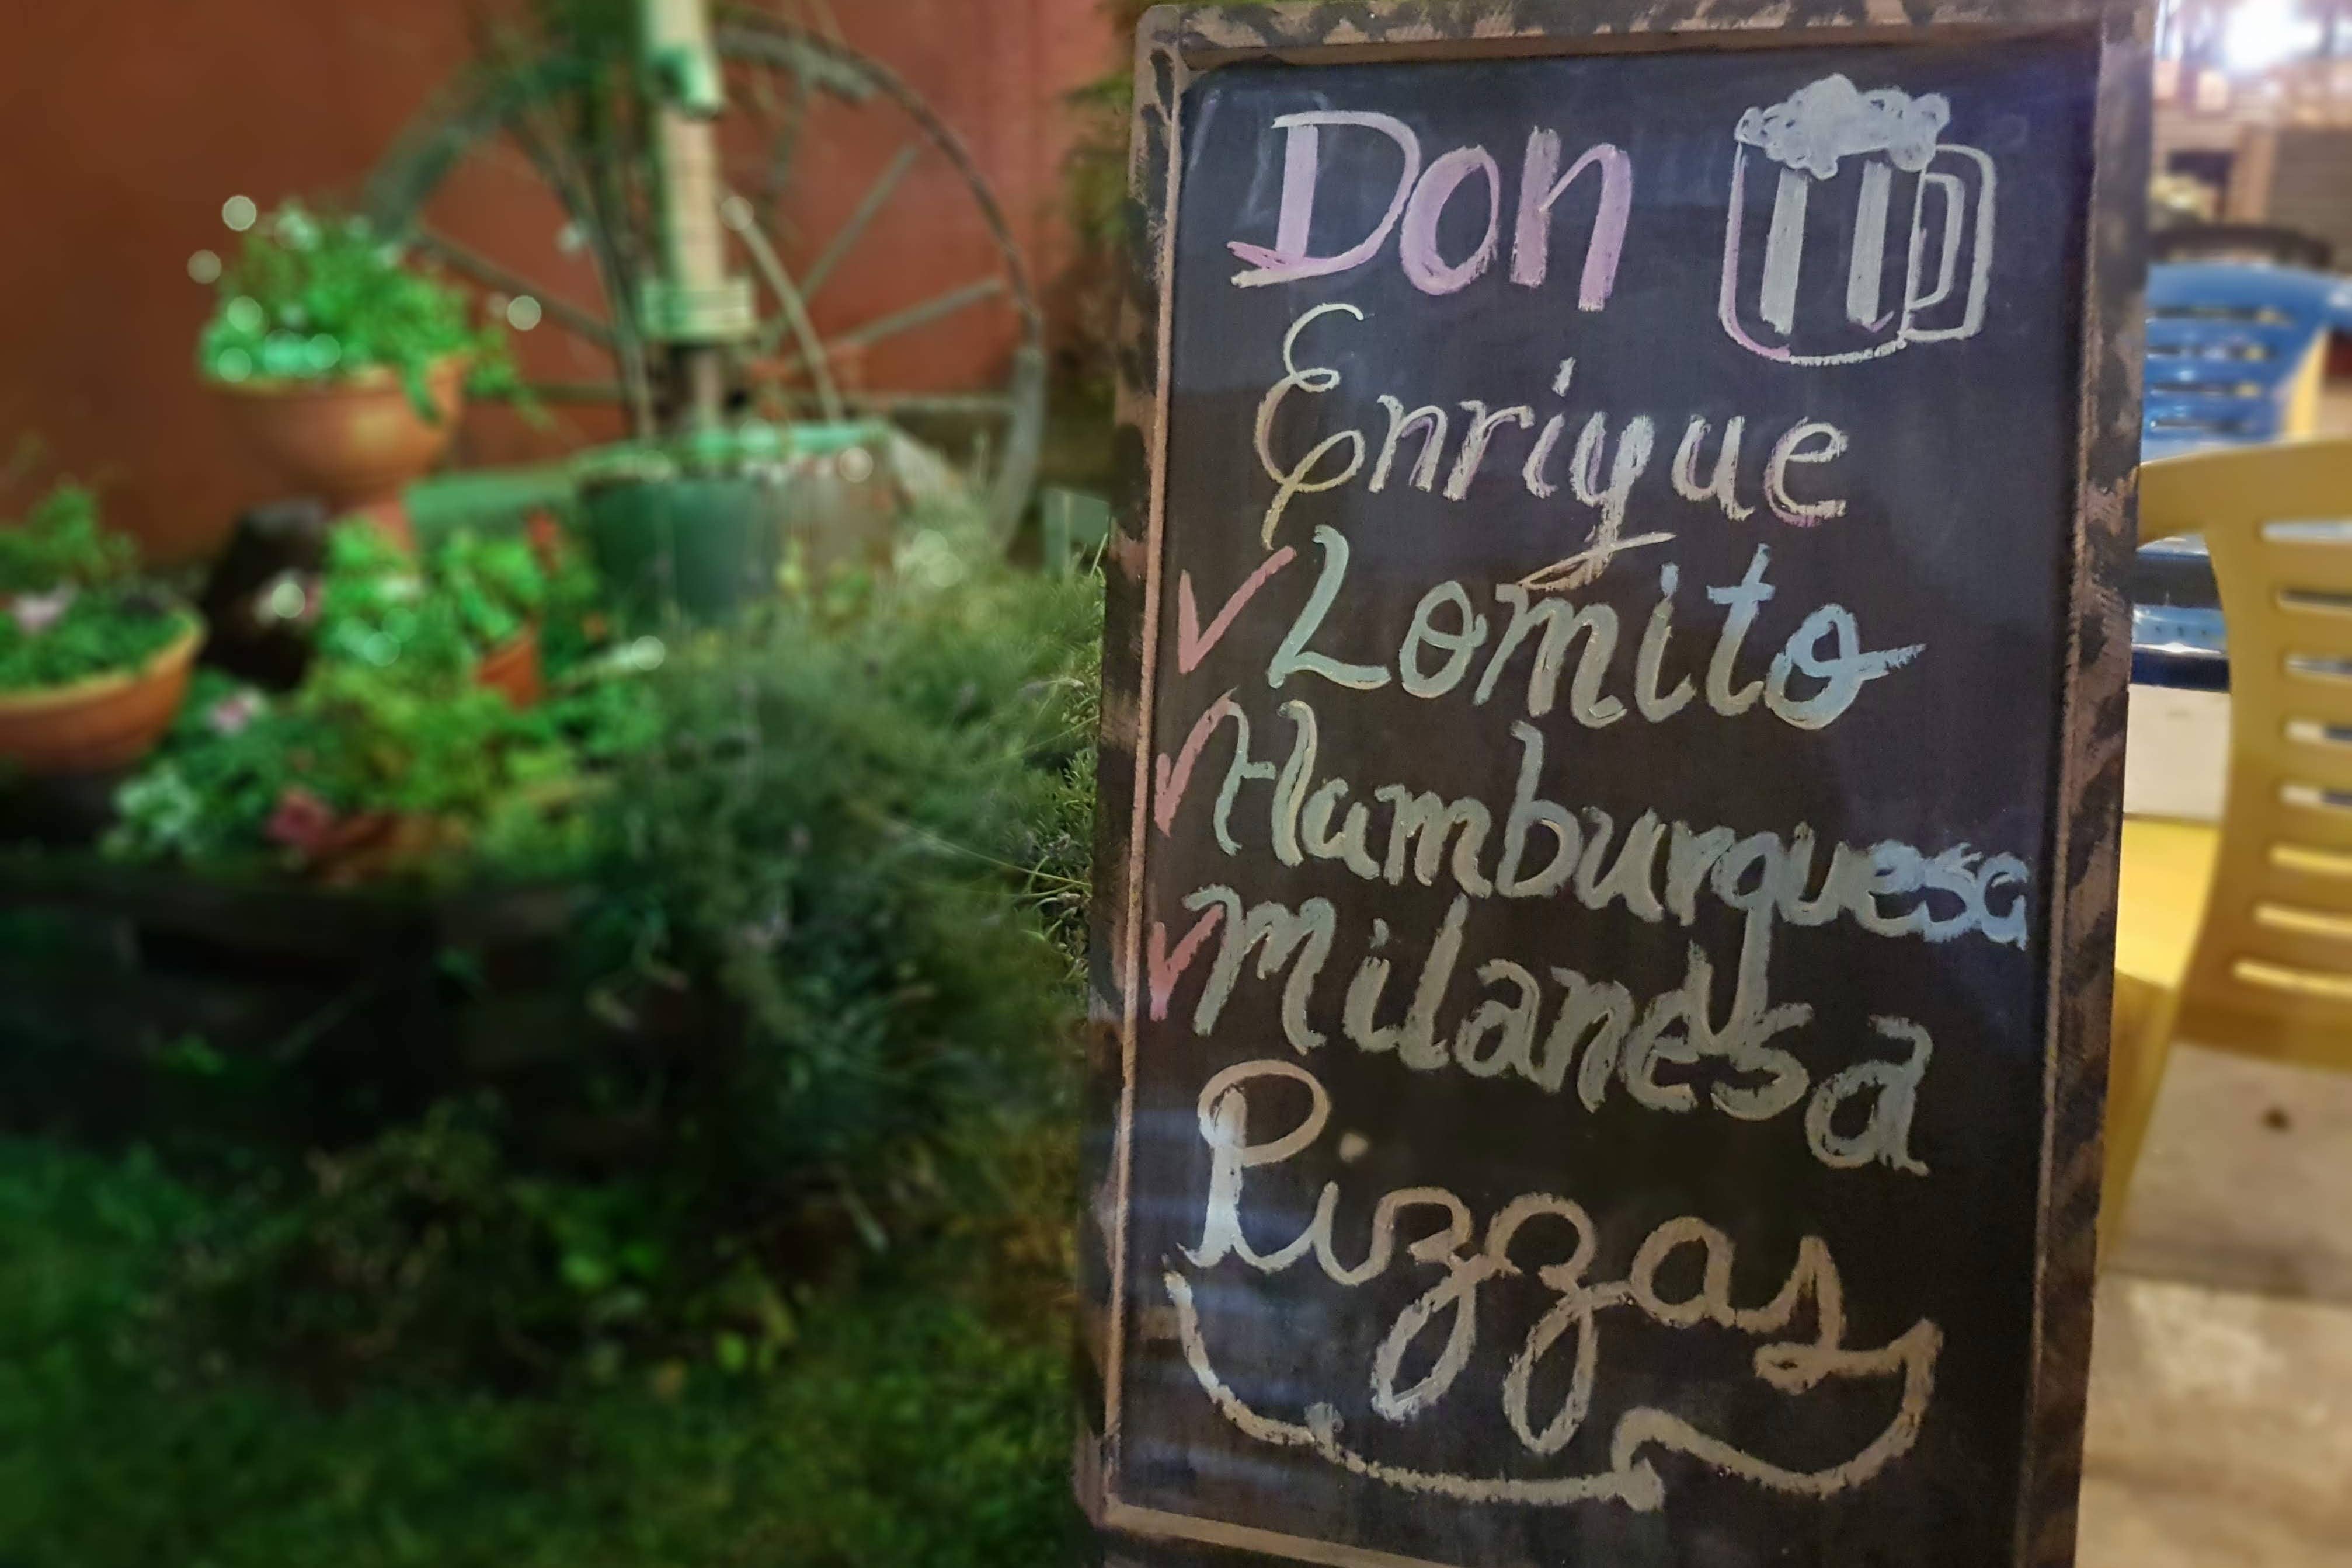 Don
Enrique
Lomito
Hamburguesa
Milanesa
Pizzas